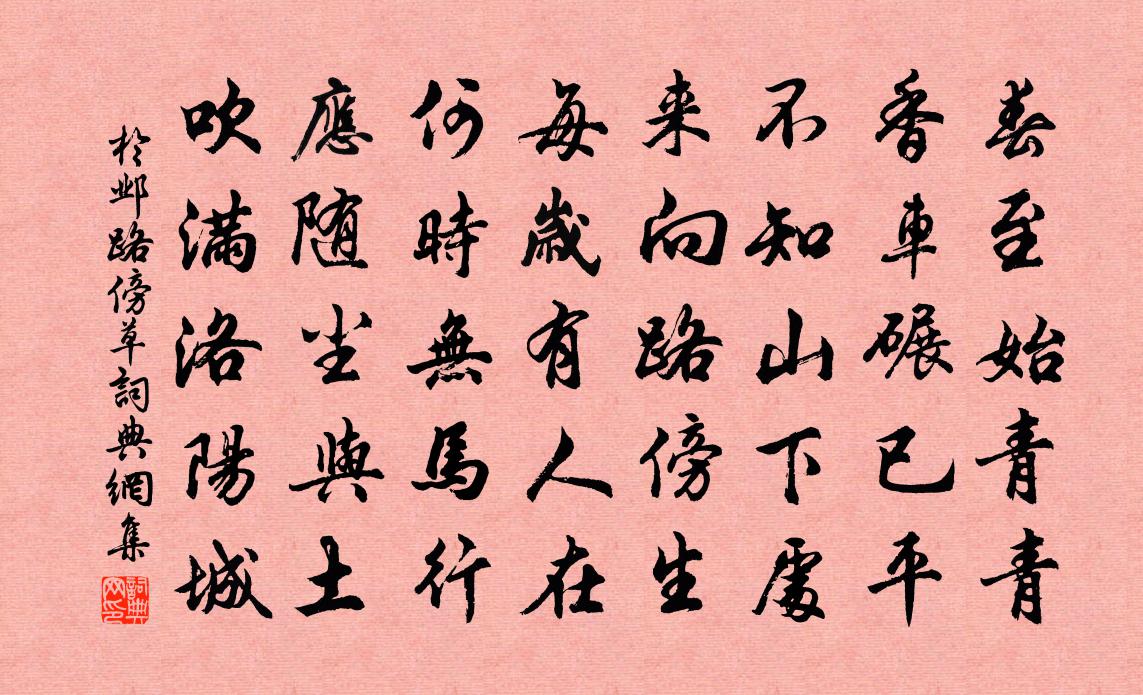 春至始青青
香車碾已平
不知山下處
来向路傍生
每歲有人在
何時無馬行
應随尘與土
吹满洛陽城
於邺路傍草詞典網集
詞典网印